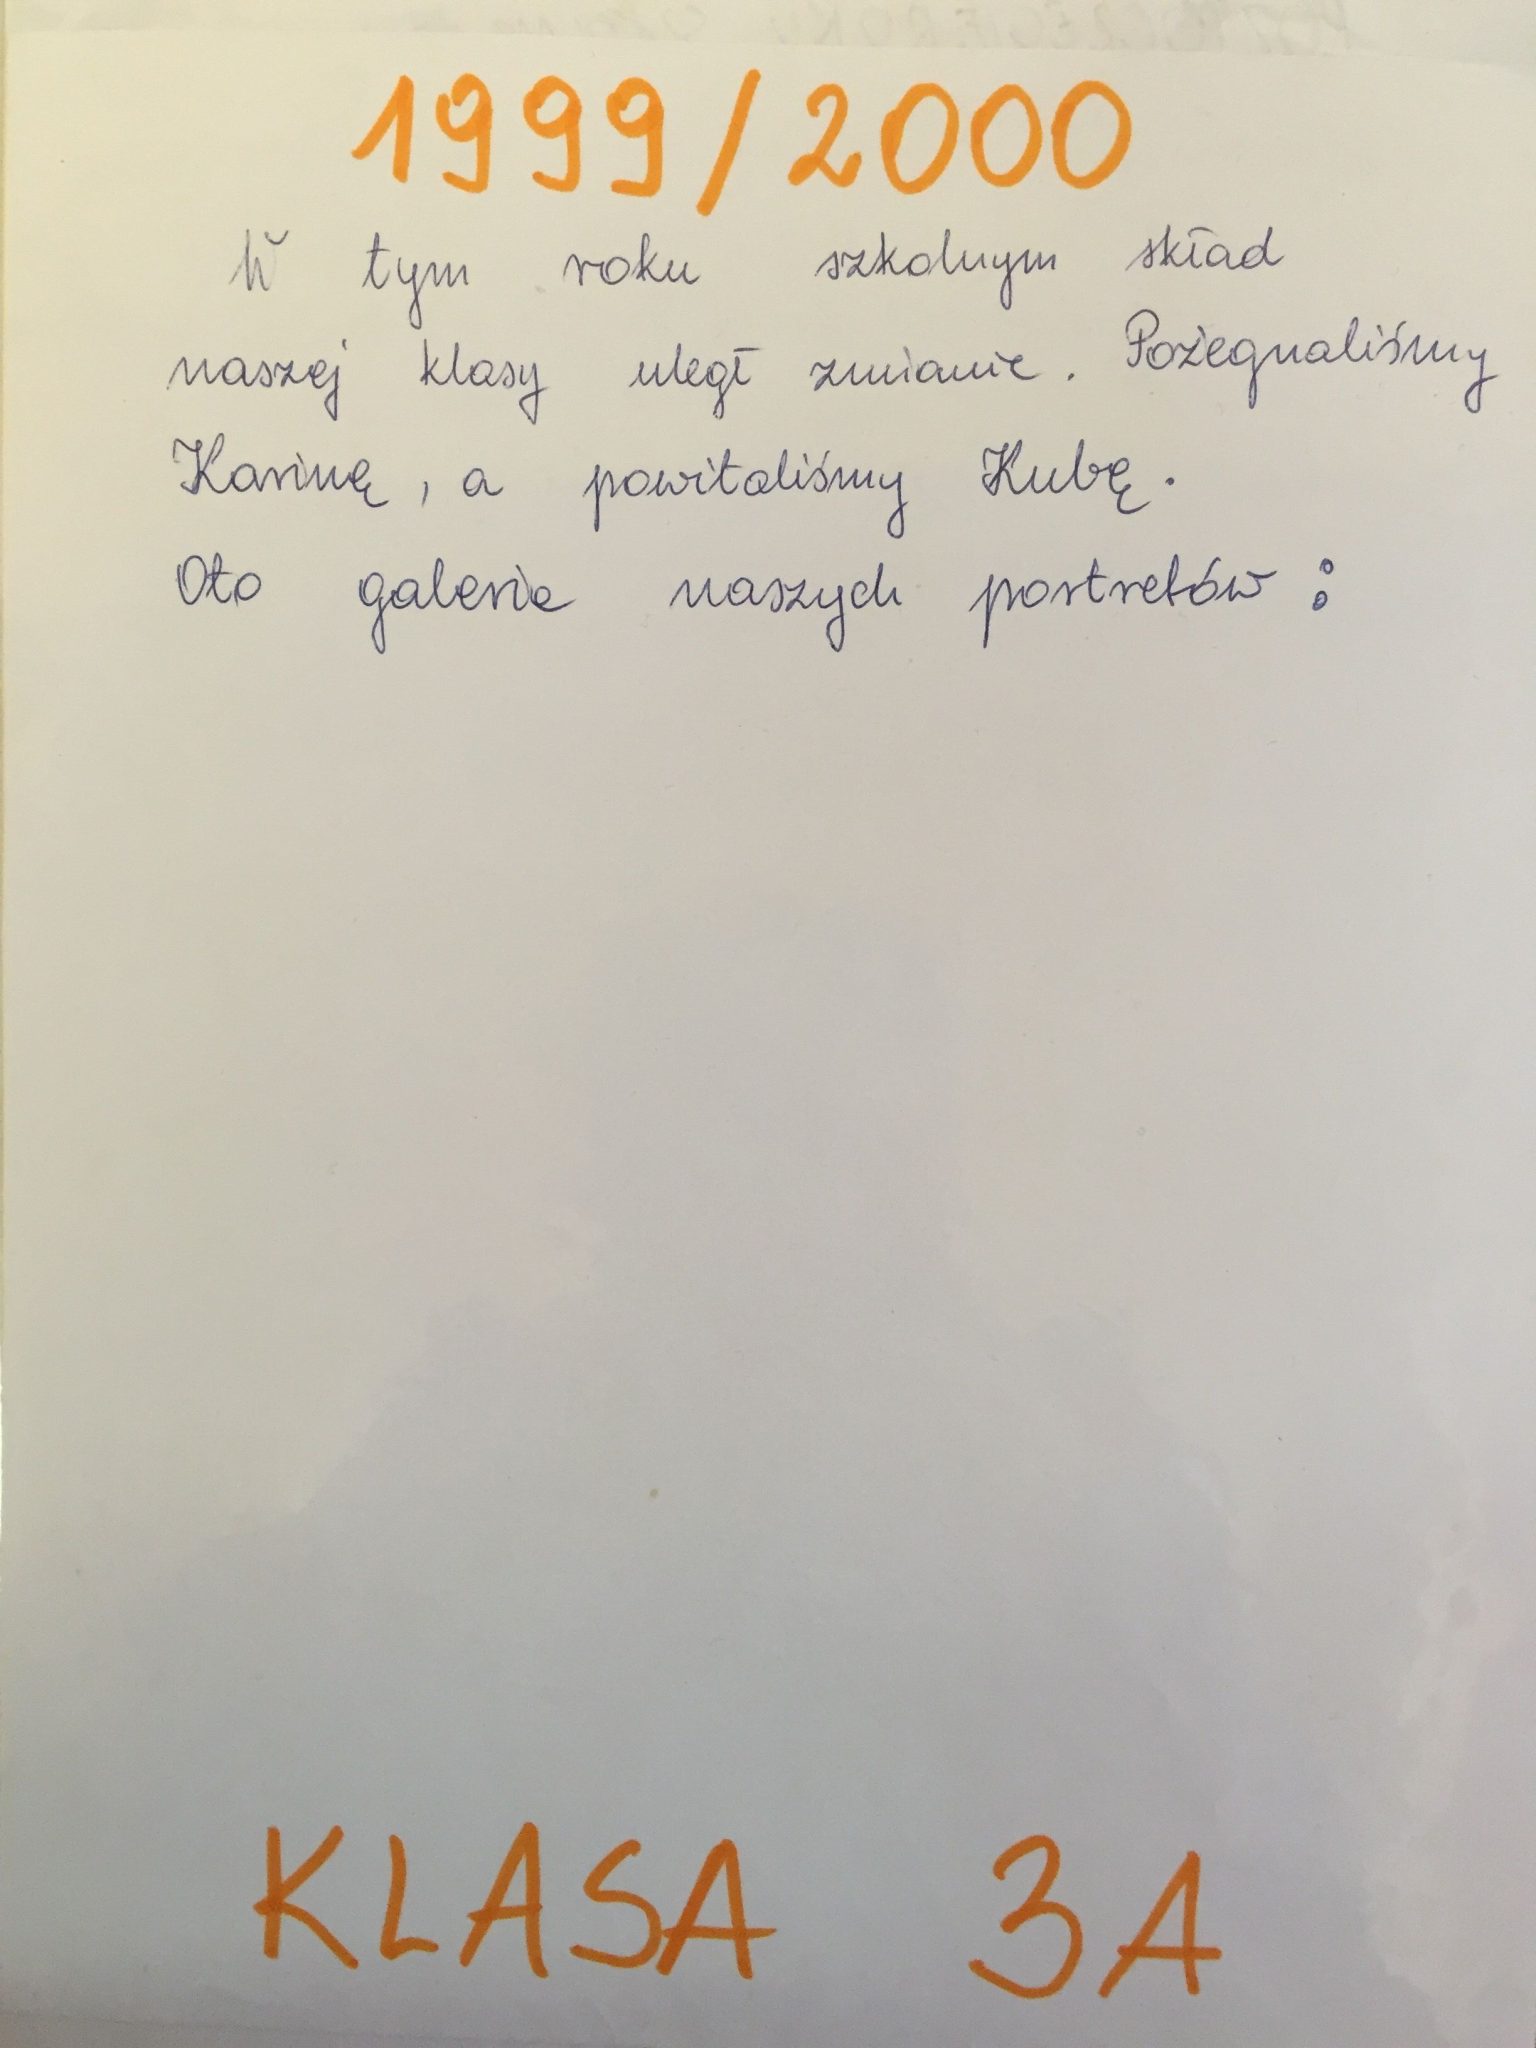 1999/2000
W tym roku szkolnym skład
naszej klasy uległ zmianie. Pożegnaliśmy
Karinę, a powitaliśmy Kubę.
Oto galeria naszych portretów:
KLASA 3A